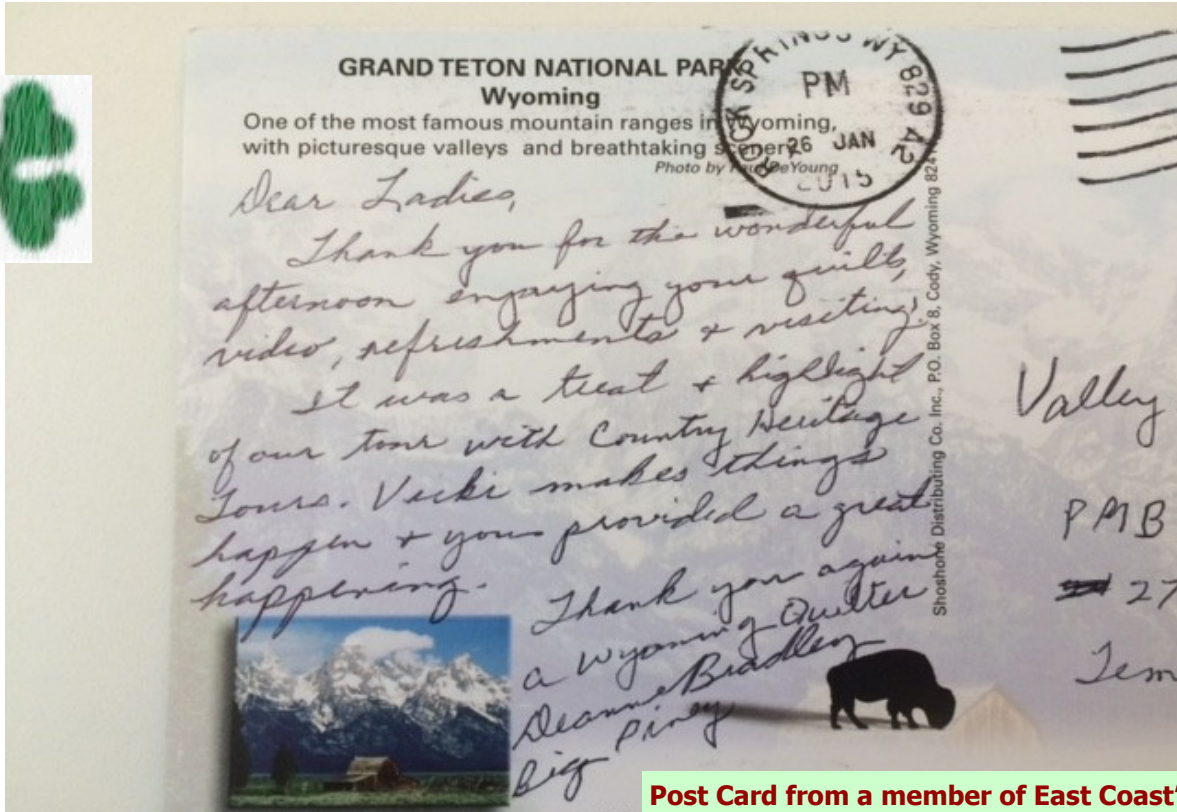 GRAND TETON NATIONAL PARK
Wyoming
One of the most famous mountain ranges in Wyoming,
with picturesque valleys and breathtaking scenery.
Photo by Paul DeYoung
ROCK SPRINGS WY 829 42
PM
26 JAN
2015
Dear Ladies,
Thank you for the wonderful
afternoon enjoying your quilts,
video, refreshments & visiting.
It was a treat & highlight
of our tour with Country Heritage
Tours. Vicki makes things
happen & you provided a great
happening.
Thank you again
a Wyoming Quilter
Deanne Bradley
Big Piney
Shoshone Distributing Co. Inc., P.O. Box 8, Cody, Wyoming 824
Valley
PMB
27
Tem
Post Card from a member of East Coast'